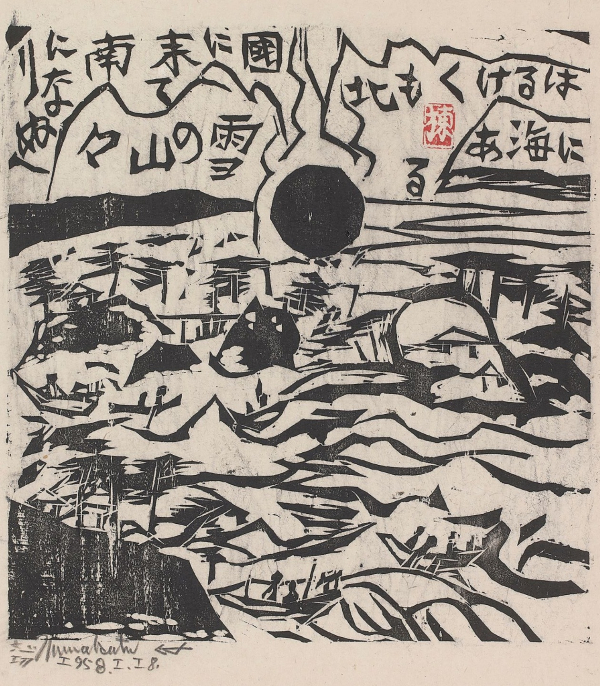 はるけくも
北に海ある
國に来て
南になりぬ
雪の山々
棟
Munakata
1958.1.18.